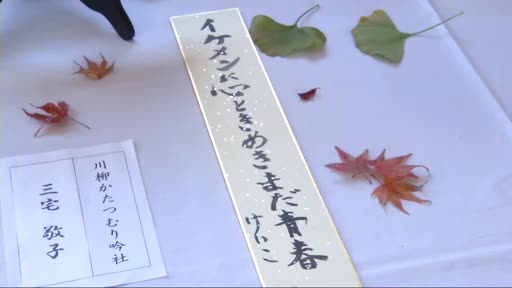 イケメンに心ときめきまだ青春
けいこ
川柳かたつむり吟社
三宅敬子